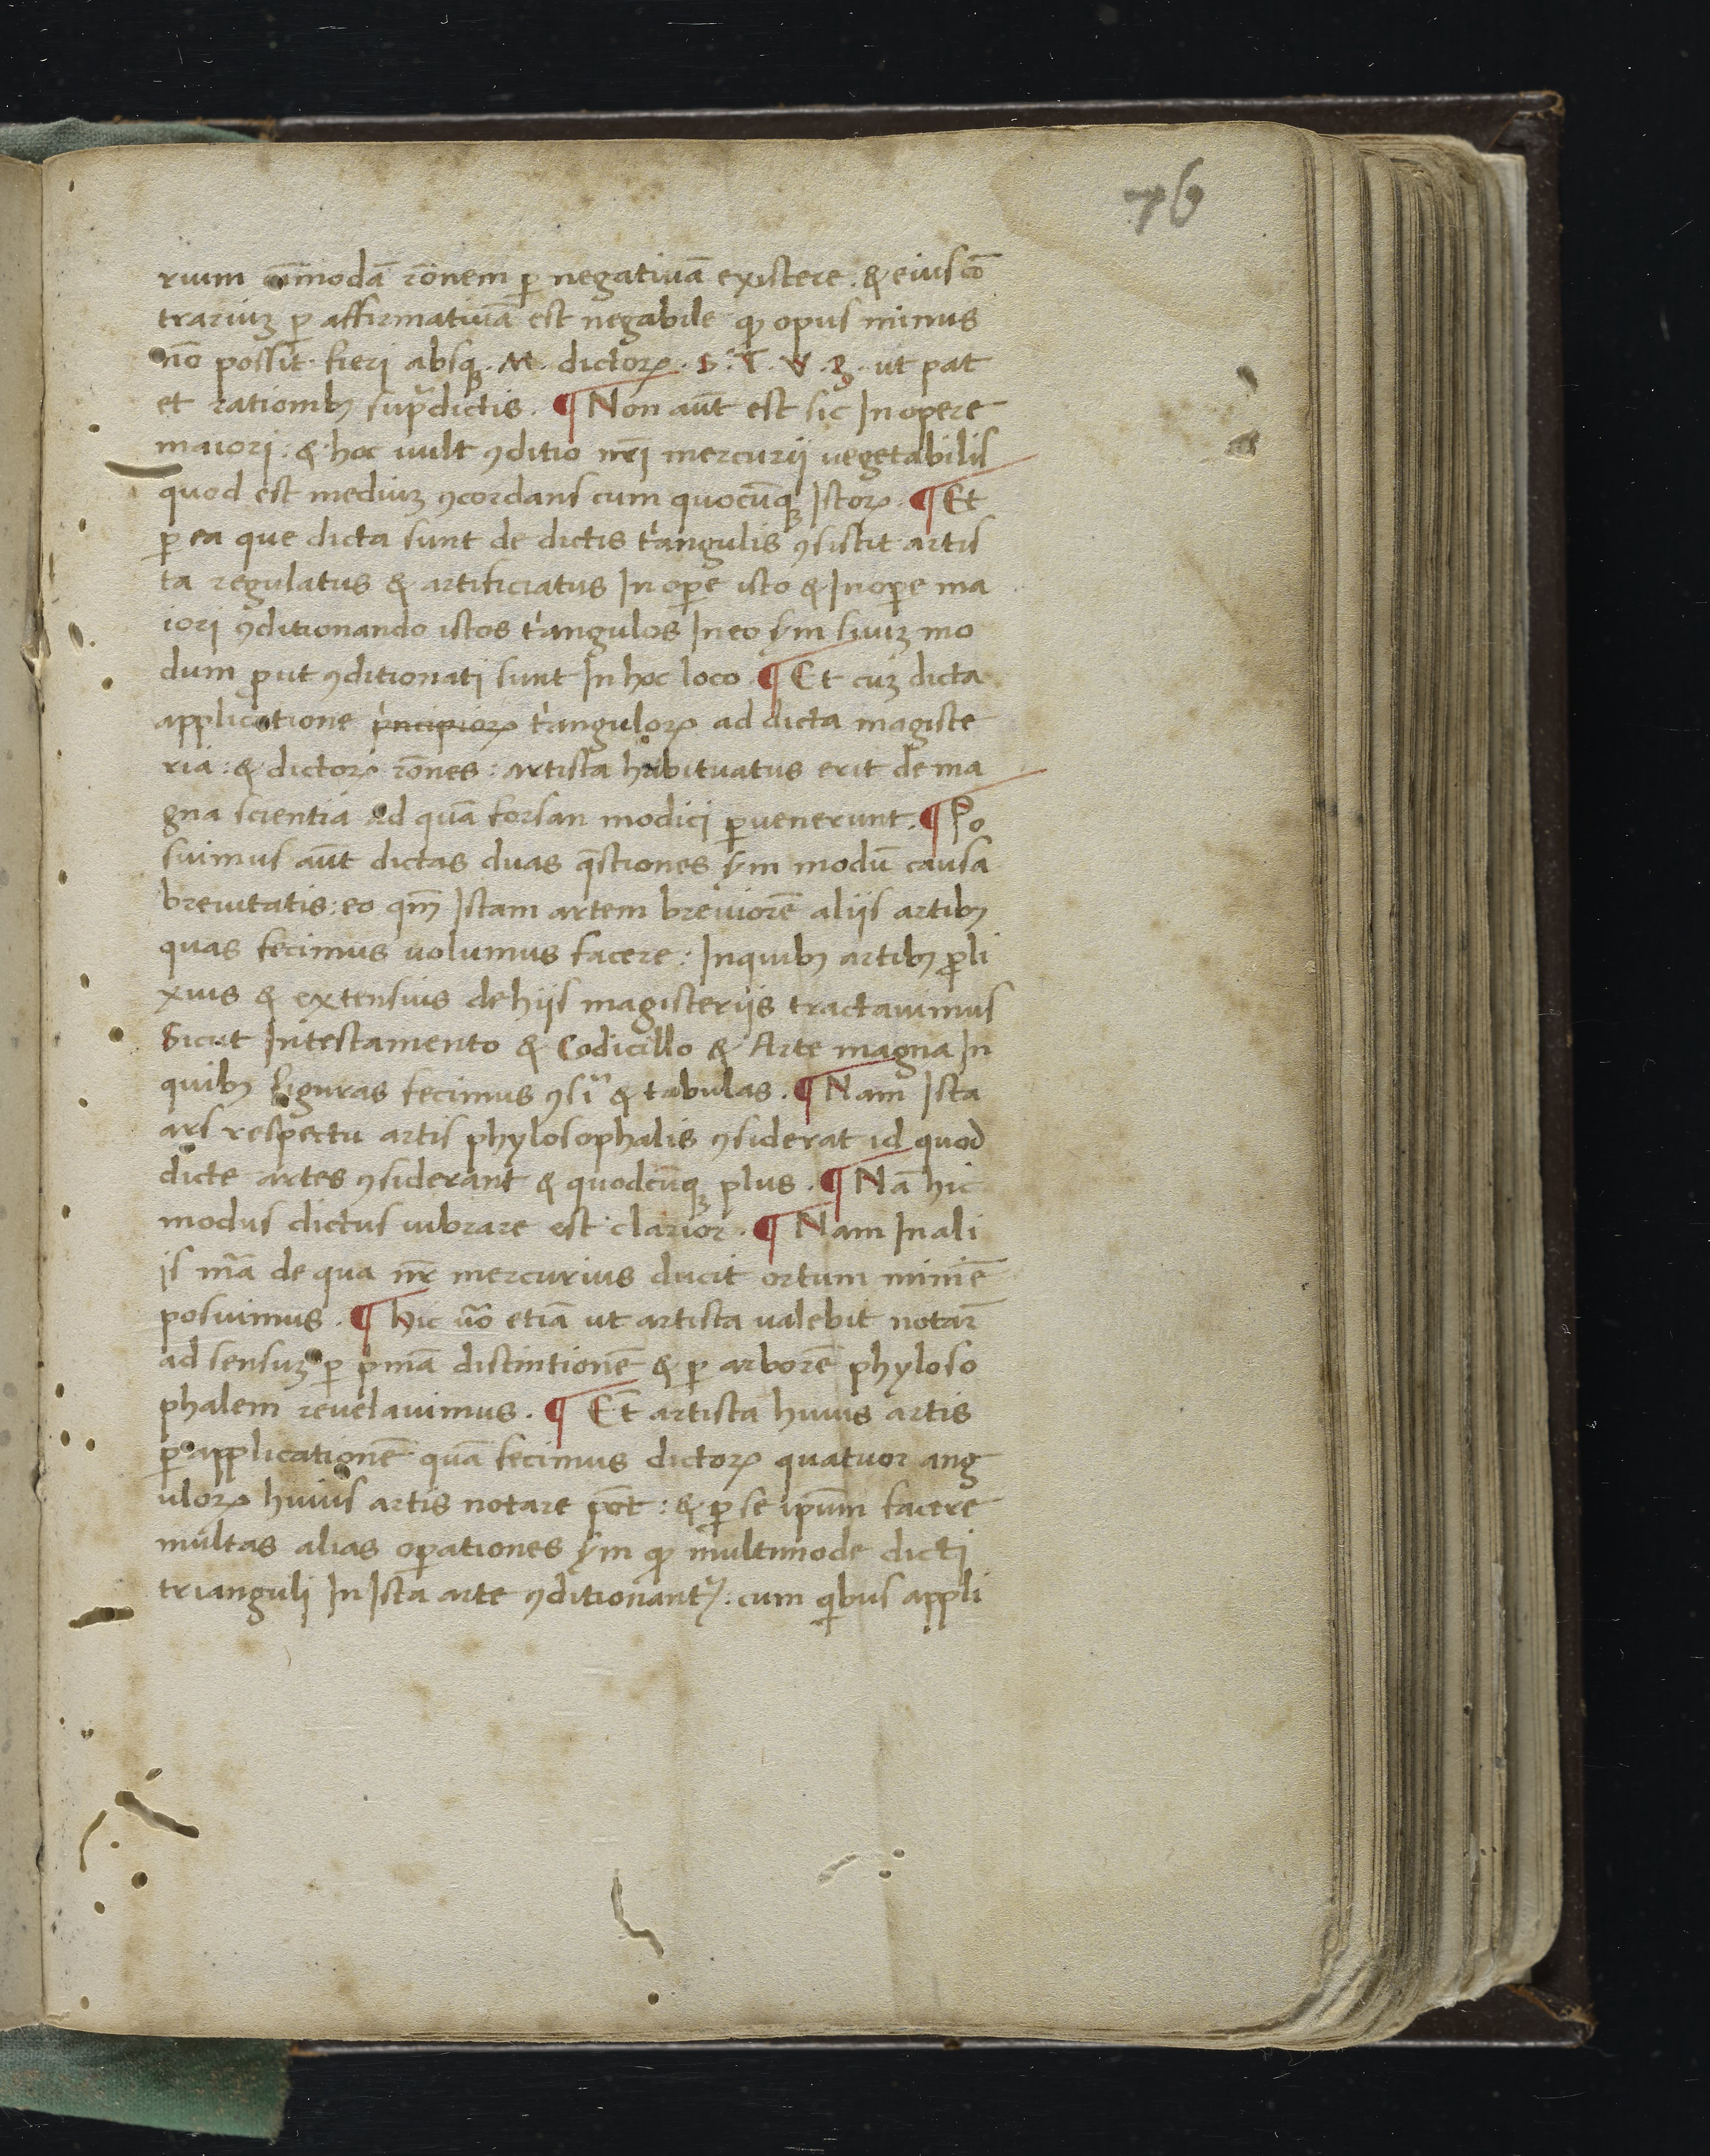 76
rium om̄modā rōnem ꝑ negatiuā existere . & eius cō
trariuꝫ ꝑ affirmatiuā est negabile ꝙ opus minus
nō possit fieri absqꝫ . M . dictoꝝ . S . T . V . Z . ut pat
et rationibꝫ sup̄dictis . ¶ Non aūt est sic In opere
maiori : & hoc uult ꝯditio nr̄i mercurij uegetabilis
quod est mediuꝫ ꝯcordans cum quocūqꝫ Istoꝝ . ¶ Et
ꝑ ea que dicta sunt de dictis tⁱangulis ꝯsistit artis
ta regulatus & artificiatus In oꝑe isto & In oꝑe ma
iori ꝯditionando istos tⁱangulos In eo sꝫm suuꝫ mo
dum ꝓut ꝯditionati sunt In hoc loco . ¶ Et cuꝫ dicta
applicatione pⁱncipioꝝ tⁱanguloꝝ ad dicta magiste
ria : & dictoꝝ rōnes : artista habituatus erit de ma
gna scientia ad quā forsan modici ꝑuenerunt . ¶ Po
suimus aūt dictas duas q̄stiones sꝫm modū causa
breuitatis : eo qm̄ Istam artem breuiorē aliis artibꝫ
quas fecimus uolumus facere : In quibꝫ artibꝫ ꝓli
xius & extensius de hiis magisteriis tractauimus
Sicut In testamento & Codicillo & Arte magna In
quibꝫ figuras fecimus ꝯsiꝉ & tabulas . ¶ Nam Ista
ars respectu artis phylosophalis ꝯsiderat id quod
dicte artes ꝯsiderant & quodcūqꝫ plus . ¶ Nā hic
modus dictus uibrare est clarior . ¶ Nam In ali
is mā de qua nr̄ mercurius ducit ortum minīe
posuimus . ¶ Hic u̅o etiā ut artista ualebit notar̄
ad sensuꝫ ꝑ pⁱmā distintionē & ꝑ arborē phyloso
phalem reuelauimus . ¶ Et artista huius artis
ꝑ applicationē quā fecimus dictoꝝ quatuor ang
uloꝝ huius artis notare pōt : & ꝑ se ipūm facere
multas alias oꝑationes sꝫm ꝙ multimode dicti
trianguli In Ista arte ꝯditionantᷣ : cum qⁱbus appli